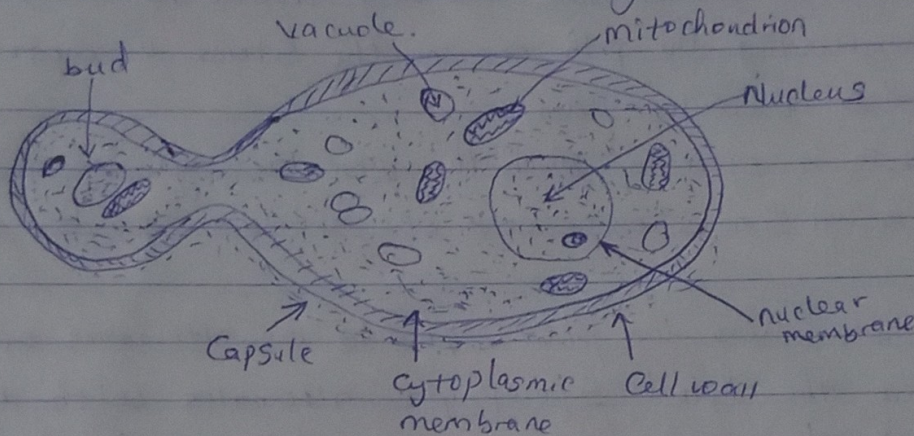 vacuole.
mitochondrion
bud
Nucleus
nuclear
membrane
Capsule
cytoplasmic
membrane
Cell wall